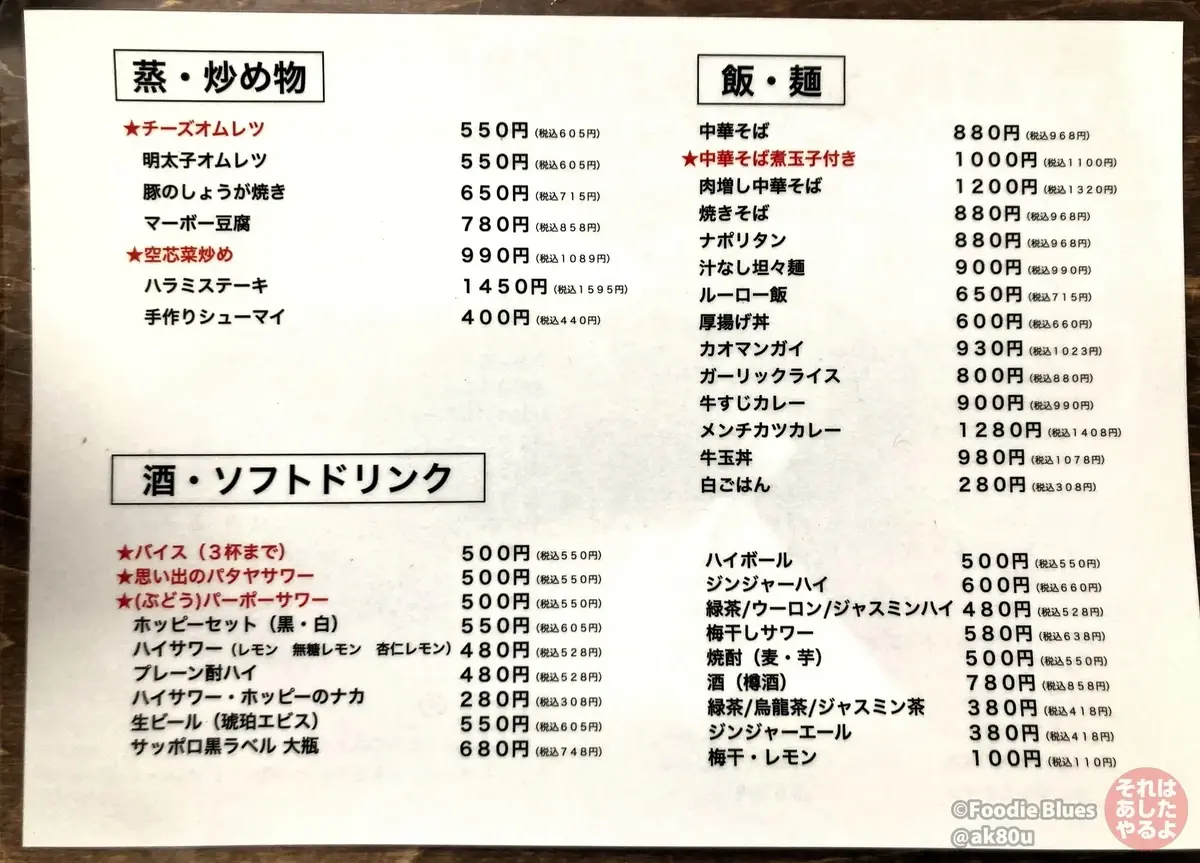 蒸・炒め物
★チーズオムレツ 550円(税込605円)
明太子オムレツ 550円(税込605円)
豚のしょうが焼き 650円(税込715円)
マーボー豆腐 780円(税込858円)
★空芯菜炒め 990円(税込1089円)
ハラミステーキ 1450円(税込1595円)
手作りシューマイ 400円(税込440円)
飯・麺
中華そば 880円(税込968円)
★中華そば煮玉子付き 1000円(税込1100円)
肉増し中華そば 1200円(税込1320円)
焼きそば 880円(税込968円)
ナポリタン 880円(税込968円)
汁なし坦々麺 900円(税込990円)
ルーロー飯 650円(税込715円)
厚揚げ丼 600円(税込660円)
カオマンガイ 930円(税込1023円)
ガーリックライス 800円(税込880円)
牛すじカレー 900円(税込990円)
メンチカツカレー 1280円(税込1408円)
牛玉丼 980円(税込1078円)
白ごはん 280円(税込308円)
酒・ソフトドリンク
★バイス（３杯まで） 500円(税込550円)
★思い出のパタヤサワー 500円(税込550円)
★(ぶどう)パーポーサワー 500円(税込550円)
ホッピーセット（黒・白） 550円(税込605円)
ハイサワー（レモン　無糖レモン　杏仁レモン） 480円(税込528円)
プレーン酎ハイ 480円(税込528円)
ハイサワー・ホッピーのナカ 280円(税込308円)
生ビール（琥珀エビス） 550円(税込605円)
サッポロ黒ラベル 大瓶 680円(税込748円)
ハイボール 500円(税込550円)
ジンジャーハイ 600円(税込660円)
緑茶/ウーロン/ジャスミンハイ 480円(税込528円)
梅干しサワー 580円(税込638円)
焼酎（麦・芋） 500円(税込550円)
酒（樽酒） 780円(税込858円)
緑茶/烏龍茶/ジャスミン茶 380円(税込418円)
ジンジャーエール 380円(税込418円)
梅干・レモン 100円(税込110円)
©Foodie Blues
@ak80u
それは
あした
やるよ